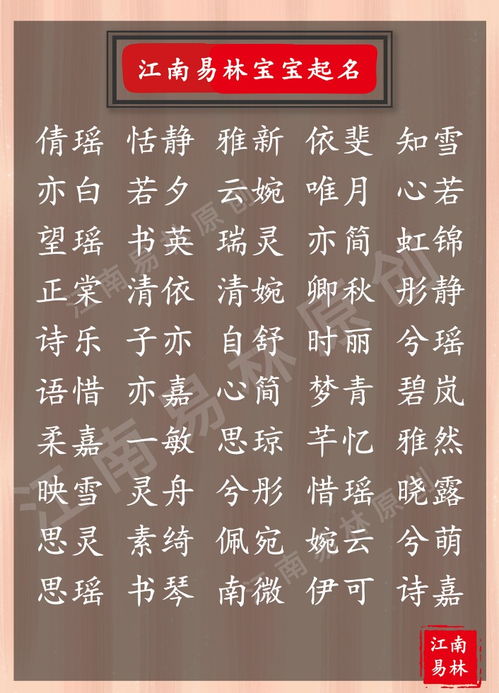 江南易林宝宝起名
倩瑶 恬静 雅新 依斐 知雪
亦白 若夕 云婉 唯月 心若
望瑶 书英 瑞灵 亦简 虹锦
正棠 清依 清婉 卿秋 彤静
诗乐 子亦 自舒 时丽 兮瑶
语惜 亦嘉 心简 梦青 碧岚
柔嘉 一敏 思琼 芊忆 雅然
映雪 灵舟 兮彤 惜瑶 晓露
思灵 素绮 佩宛 婉云 兮萌
思瑶 书琴 南微 伊可 诗嘉
江南易林原创
江南易林原创
江南易林原创
江南
易林